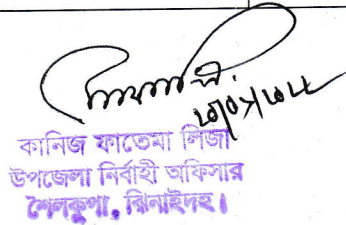 কানিজ ফাতেমা লিজা
উপজেলা নির্বাহী অফিসার
শৈলকুপা, ঝিনাইদহ।